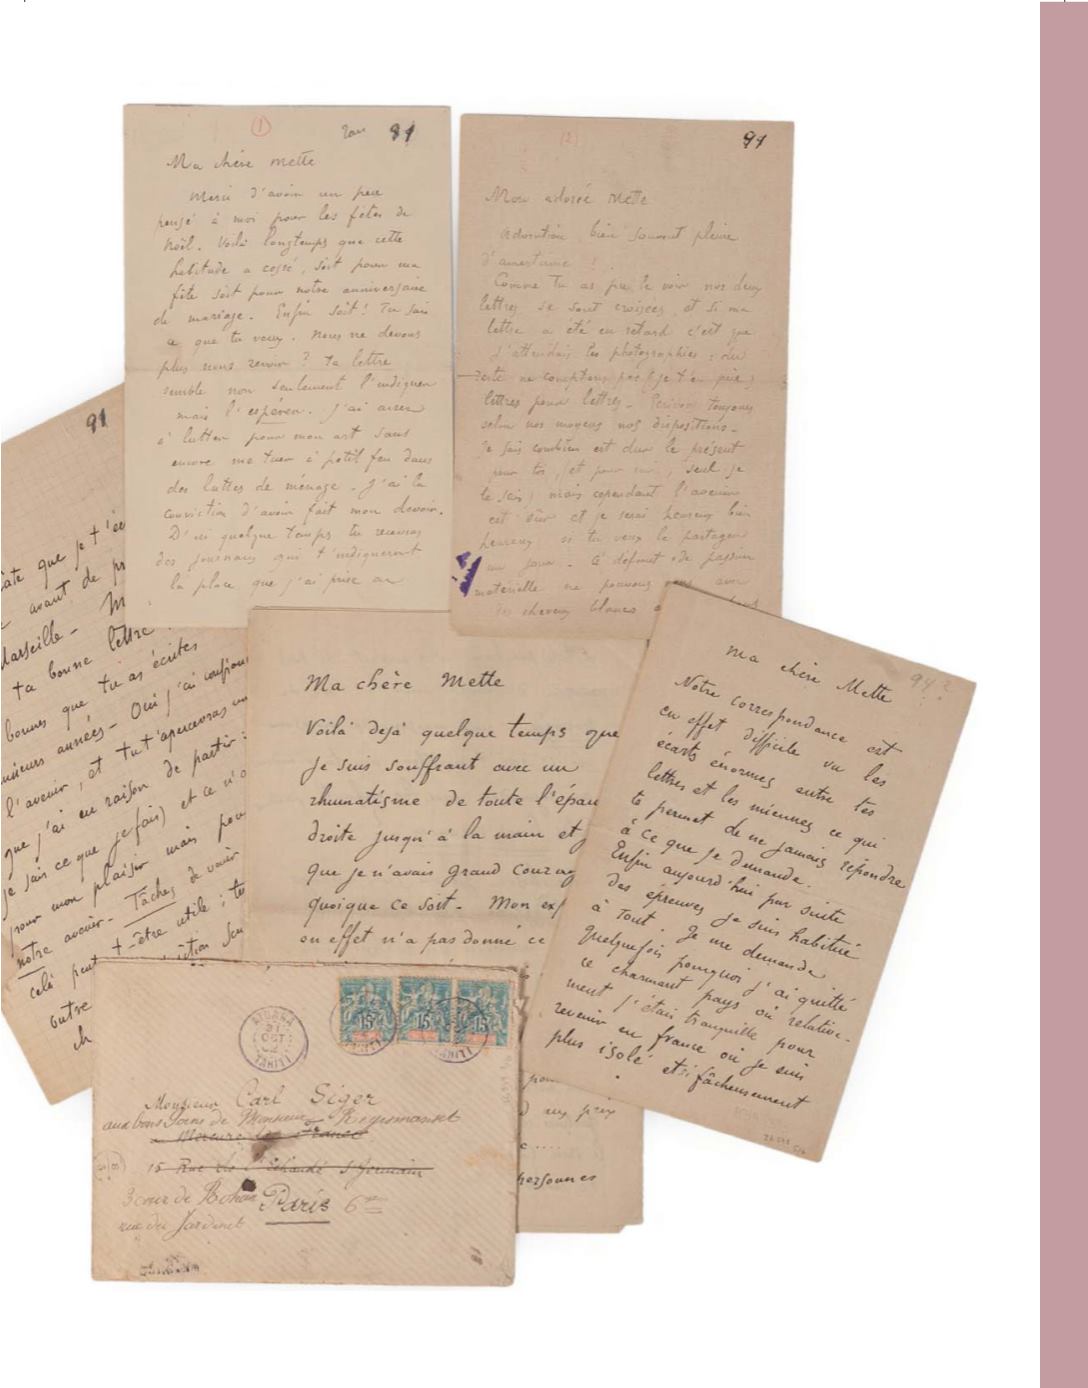 (1)
91
Ma chère Mette
Merci d'avoir un peu
pensé à moi pour les fêtes de
Noël. Voilà longtemps que cette
habitude a cessé, soit pour ma
fête soit pour notre anniversaire
de mariage. Enfin soit! Tu sais
ce que tu veux. Nous ne devons
plus nous revoir? ta lettre
semble non seulement l'indiquer
mais l'espérer. J'ai assez
à lutter pour mon art sans
encore me tuer à petit feu dans
des luttes de ménage. J'ai la
conviction d'avoir fait mon devoir.
D'ici quelque temps tu recevras
des journaux qui t'indiqueront
la place que j'ai prise au
(2)
91
Mon adorée Mette
Adoration, bien souvent pleine
d'amertume!
Comme tu as pu le voir nos deux
lettres se sont croisées, et si ma
lettre a été en retard c'est que
j'attendais les photographies: du
reste ne comptons pas (je t'en prie)
lettres pour lettres - Ecrivons toujours
selon nos moyens nos dispositions -
Je sais combien est dur le présent
pour toi, (et pour moi, seul je
le sais) mais cependant l'avenir
est sûr et je serai heureux bien
heureux si tu veux le partager
un jour. - A défaut de passion
matérielle ne pouvons nous avec
des cheveux blancs
91
que je t'éc
avant de
Marseille -
ta bonne lettre
bonnes que tu as écrites
années - Oui j'ai
l'avenir, et tu t'apercevras un
que j'ai eu raison de partir:
je sais ce que je fais) et ce n'
pour mon plaisir mais pou
notre avenir - Tâchez de vour
celà peut t-être utile; te
outre
ch
Ma chère Mette
Voilà dejà quelque temps que
Je suis souffrant avec un
rhumatisme de toute l'épau
droite jusqu'à la main et
que je n'avais grand courag
quoique ce soit - Mon exp
en effet n'a pas donné ce
pou
aux prix
personnes
94?
Ma chère Mette
Notre correspondance est
en effet difficile vu les
écarts énormes entre tes
lettres et les miennes ce qui
te permet de ne jamais répondre
à ce que je demande.
Enfin aujourd'hui par suite
des épreuves je suis habitué
à tout. Je me demande
quelquefois pourquoi j'ai quitté
ce charmant pays où relative-
ment j'étais tranquille pour
revenir en france où je suis
plus isolé et si fâcheusement
15 15 15
31
OCT
TAHITI
Monsieur Carl Siger
aux bons soins de Monsieur Régismanset
Mercure de France
15 Rue de l'Echaudé St Germain
3 cour de Rohan Paris 6
rue du Jardinet